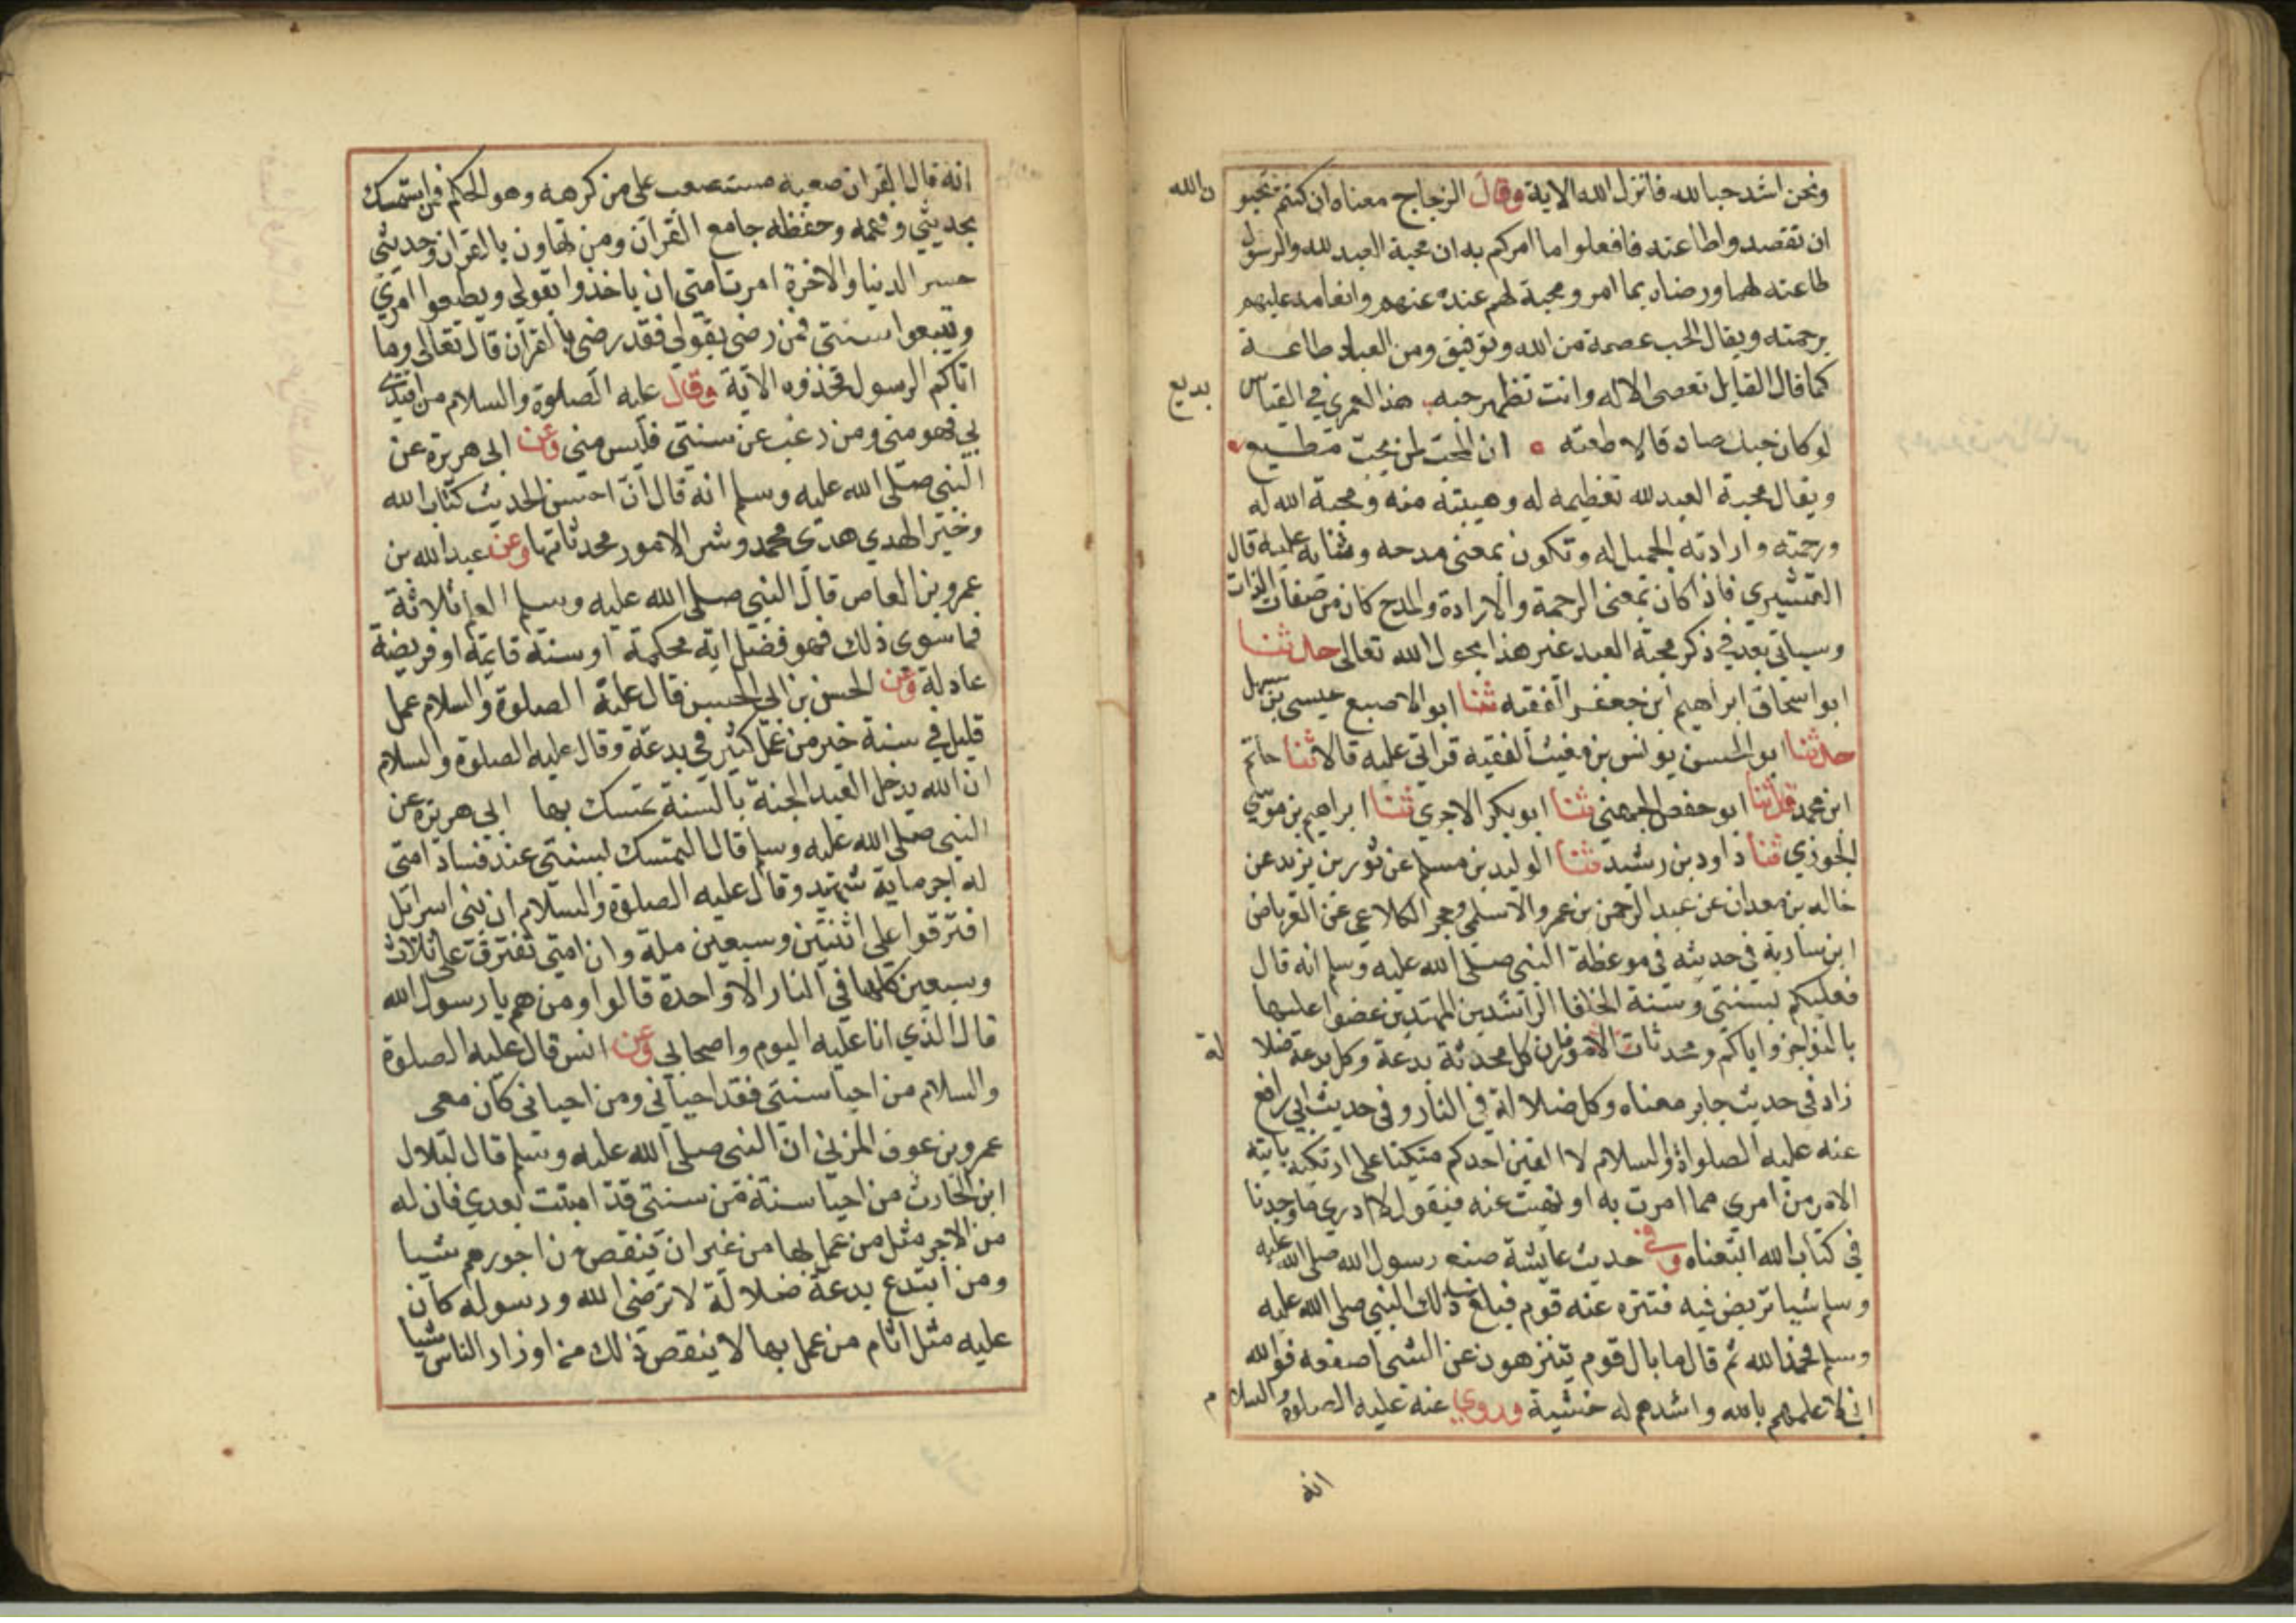 ونحن اشد حبا لله فانزل الله الاية وقال الزجاج معناه ان كنتم تحبو
ن الله
ان تقصدوا طاعته فافعلوا ما امركم به ان محبة العبد لله والرسول
طاعته لهما ورضاه بما امر ومحبة لهم عنده عنهم وانعامه عليهم
برحمته ويقال الحب عصمة من الله وتوفيق ومن العباد طاعة
كما قال القايل تعصى الاله وانت تظهر حبه هذا لعمري في القياس
بديع
لو كان حبك صادقا لاطعته ان المحب لمن يحب مطيع
ويقال محبة العبد لله تعظيمه له وهيبته منه ومحبة الله له
ورحمته وارادته الجميل له وتكون بمعنى مدحه وثنايه عليه قال
القشيري فاذا كان بمعنى الرحمة والارادة والمدح كان من صفات الذات
وسياتي بعد في ذكر محبة العبد غير هذا بحول الله تعالى حدثنا
ابو اسحاق ابراهيم ابن جعفر الفقيه ثنا ابو الاصبع عيسى بن سهل
حدثنا ابو الحسن يونس بن مغيث الفقيه قراتي عليه قالا ثنا حاتم
ابن محمد ثنا ابو حفص الجهني ثنا ابو بكر الاجري ثنا ابراهيم بن موسى
الجوزي ثنا داود بن رشيد ثنا الوليد بن مسلم عن ثور بن يزيد عن
خالد بن معدان عن عبد الرحمن بن عمرو الاسلمي وحجر الكلاعي عن العرباض
ابن سارية في حديثه في موعظة النبي صلى الله عليه وسلم انه قال
فعليكم بسنتي وسنة الخلفا الراشدين المهتدين عضوا عليها
بالنواجز واياكم ومحدثات الامور فان كل محدثة بدعة وكل بدعة ضلا
لة
زاد في حديث جابر معناه وكل ضلالة في النار وفي حديث ابي رافع
عنه عليه الصلواة والسلام لا الفين احدكم متكئا على اريكته ياتيه
الامر من امري مما امرت به او نهيت عنه فيقول لا ادري ما وجدنا
في كتاب الله اتبعناه وفي حديث عايشة صنع رسول الله صلى الله عليه
وسلم شيا ترخص فيه فتنزه عنه قوم فبلغ ذلك النبي صلى الله عليه
وسلم فحمد الله ثم قال ما بال قوم يتنزهون عن الشى اصنعه فوالله
اني لاعلمهم بالله واشدهم له خشية وروي عنه عليه الصلوة والسلام
انه
انه قال القران صعب مستصعب على من كرهه وهو الحكم فمن استمسك
بحديثي وفهمه وحفظه جامع القران ومن تهاون بالقران وحديثي
خسر الدنيا والاخرة امرت امتي ان ياخذوا بقولي ويطيعوا امري
ويتبعوا سنتي فمن رضي بقولي فقد رضي بالقران قال تعالى وما
اتاكم الرسول فخذوه الاية وقال عليه الصلوة والسلام من اقتدى
بي فهو مني ومن رغب عن سنتي فليس مني وعن ابي هريرة عن
النبي صلى الله عليه وسلم انه قال ان احسن الحديث كتاب الله
وخير الهدي هدى محمد وشر الامور محدثاتها وعن عبد الله بن
عمرو بن العاص قال النبي صلى الله عليه وسلم العلم ثلاثة
فما سوى ذلك فهو فضل اية محكمة او سنة قايمة او فريضة
عادلة وعن الحسن بن ابي الحسين قال عليه الصلوة والسلام عمل
قليل في سنة خير من عمل كثير في بدعة وقال عليه الصلوة والسلام
ان الله يدخل العبد الجنة بالسنة تمسك بها ابي هريرة عن
النبي صلى الله عليه وسلم قال المتمسك بسنتي عند فساد امتي
له اجر ماية شهيد وقال عليه الصلوة والسلام ان بني اسرائل
افترقوا على اثنتين وسبعين ملة وان امتي تفترق على ثلاث
وسبعين كلها في النار الا واحدة قالوا ومن هم يا رسول الله
قال الذي انا عليه اليوم واصحابي وعن انس قال عليه الصلوة
والسلام من احيا سنتي فقد احياني ومن احياني كان معى
عمرو بن عوف المزني ان النبي صلى الله عليه وسلم قال لبلال
ابن الحارث من احيا سنة من سنتي قد اميتت بعدي فان له
من الاجر مثل من عمل بها من غير ان ينقص من اجورهم شيا
ومن ابتدع بدعة ضلالة لا ترضي الله ورسوله كان
عليه مثل اثام من عمل بها لا ينقص ذلك من اوزار الناس شيا